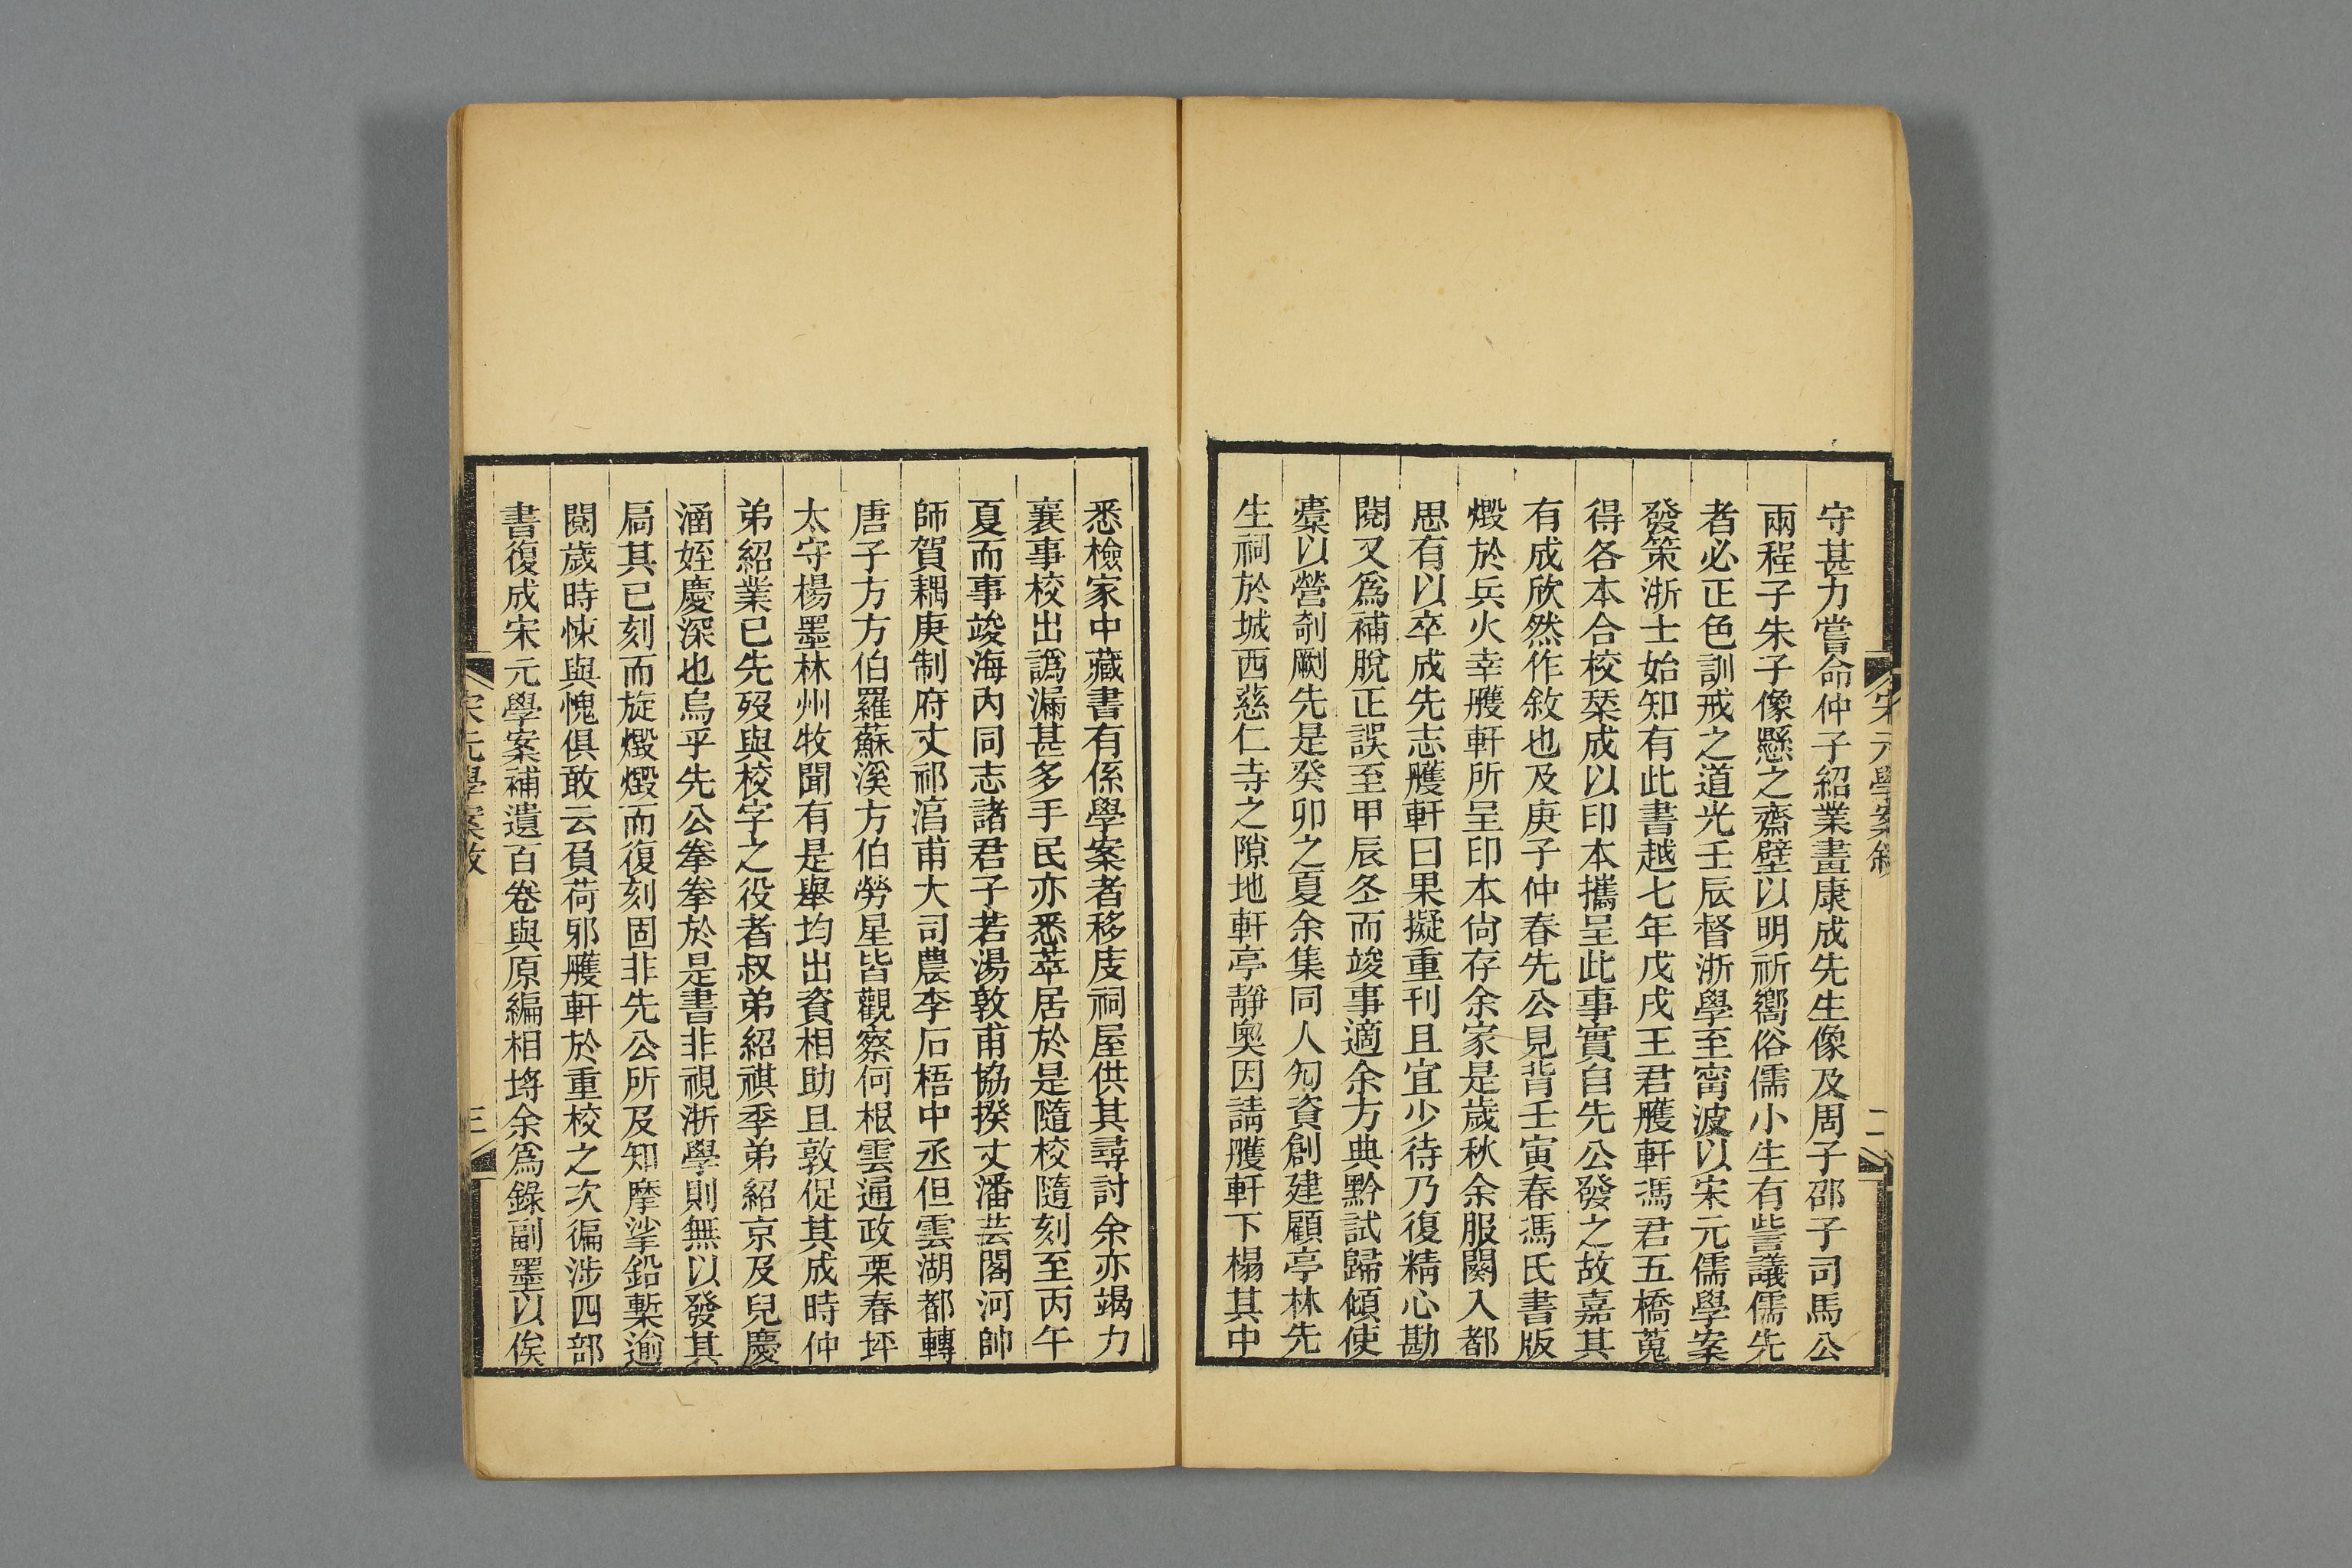 宋元學案敘
二
守甚力嘗命仲子紹業畫康成先生像及周子邵子司馬公
兩程子朱子像懸之齋壁以明祈嚮俗儒小生有訾議儒先
者必正色訓戒之道光壬辰督浙學至甯波以宋元儒學案
發策浙士始知有此書越七年戊戌王君雘軒馮君五橋蒐
得各本合校栞成以印本攜呈此事實自先公發之故嘉其
有成欣然作敘也及庚子仲春先公見背壬寅春馮氏書版
燬於兵火幸雘軒所呈印本尙存余家是歲秋余服闋入都
思有以卒成先志雘軒曰果擬重刊且宜少待乃復精心勘
閱又爲補脫正誤至甲辰冬而竣事適余方典黔試歸傾使
橐以營剞劂先是癸卯之夏余集同人匃資創建顧亭林先
生祠於城西慈仁寺之隙地軒亭靜奧因請雘軒下榻其中
悉檢家中藏書有係學案者移庋祠屋供其尋討余亦竭力
襄事校出譌漏甚多手民亦悉萃居於是隨校隨刻至丙午
夏而事竣海內同志諸君子若湯敦甫協揆丈潘芸閣河帥
師賀耦庚制府丈祁淯甫大司農李石梧中丞但雲湖都轉
唐子方方伯羅蘇溪方伯勞星皆觀察何根雲通政栗春坪
太守楊墨林州牧聞有是舉均出資相助且敦促其成時仲
弟紹業已先歿與校字之役者叔弟紹祺季弟紹京及兒慶
涵姪慶深也烏乎先公拳拳於是書非視浙學則無以發其
局其已刻而旋燬燬而復刻固非先公所及知摩挲鉛槧逾
閱歲時悚與愧俱敢云負荷邪雘軒於重校之次徧涉四部
書復成宋元學案補遺百卷與原編相埒余爲錄副墨以俟
宋元學案敘
三